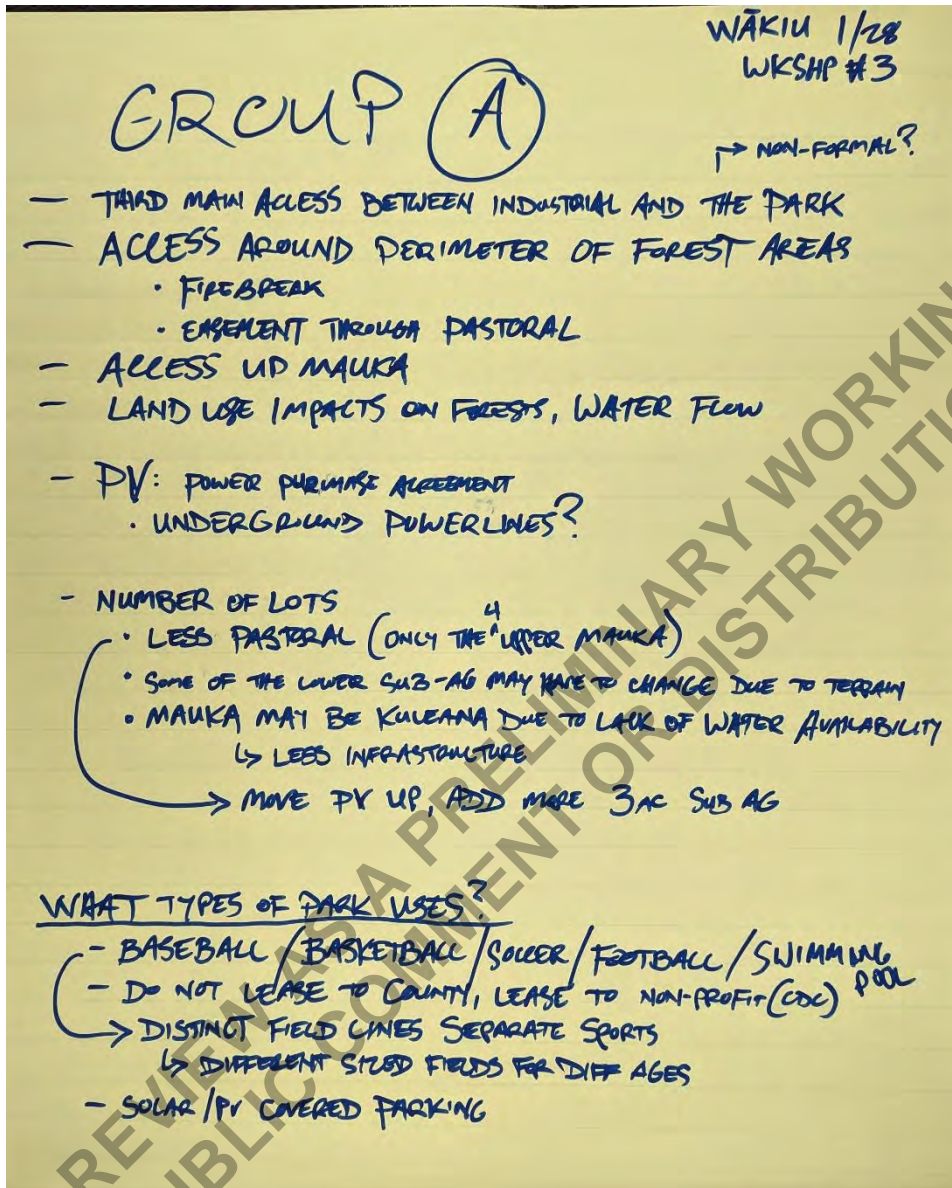 WĀKIU 1/28
WKSHP #3
GROUP A
↱ NON-FORMAL?
— THIRD MAIN ACCESS BETWEEN INDUSTRIAL AND THE PARK
— ACCESS AROUND PERIMETER OF FOREST AREAS
• FIREBREAK
• EASEMENT THROUGH PASTORAL
— ACCESS UP MAUKA
— LAND USE IMPACTS ON FORESTS, WATER FLOW
— PV: POWER PURCHASE AGREEMENT
• UNDERGROUND POWERLINES?
— NUMBER OF LOTS
• LESS PASTORAL (ONLY THE ^4 UPPER MAUKA)
• SOME OF THE LOWER SUB-AG MAY HAVE TO CHANGE DUE TO TERRAIN
• MAUKA MAY BE KULEANA DUE TO LACK OF WATER AVAILABILITY
↳ LESS INFRASTRUCTURE
→ MOVE PV UP, ADD MORE 3 AC SUB AG
WHAT TYPES OF PARK USES?
— BASEBALL / BASKETBALL / SOCCER / FOOTBALL / SWIMMING POOL
— DO NOT LEASE TO COUNTY, LEASE TO NON-PROFIT (CDC)
→ DISTINCT FIELD LINES SEPARATE SPORTS
↳ DIFFERENT SIZED FIELDS FOR DIFF AGES
— SOLAR / PV COVERED PARKING
REVIEW AS A PRELIMINARY WORKIN
UBLIC COMMENT OR DISTRIBUTIO